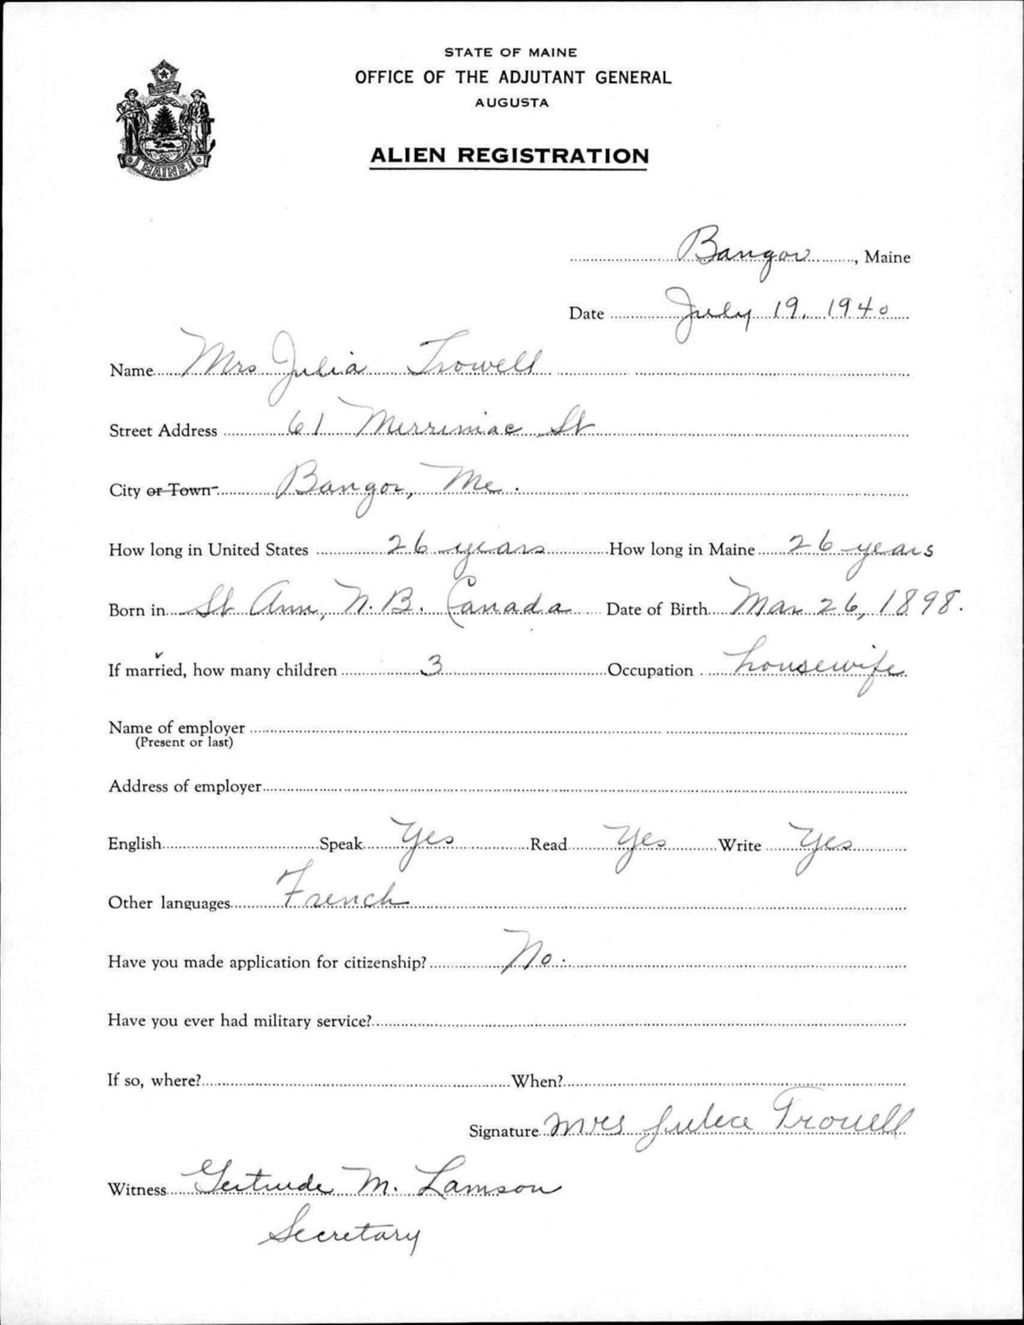 STATE OF MAINE
OFFICE OF THE ADJUTANT GENERAL
AUGUSTA
ALIEN REGISTRATION
MAINE
Bangor, Maine
Date July 19, 1940
Name Mrs Julia Trowell
Street Address 61 Merrimac St
City or Town Bangor, Me.
How long in United States 26 years How long in Maine 26 years
Born in St Ann, N.B. Canada Date of Birth Mar 26, 1898.
If married, how many children 3 Occupation housewife
Name of employer
(Present or last)
Address of employer
English Speak Yes Read Yes Write Yes
Other languages French
Have you made application for citizenship? No.
Have you ever had military service?
If so, where? When?
Signature Mrs Julia Trowell
Witness Gertrude M. Lamson
Secretary